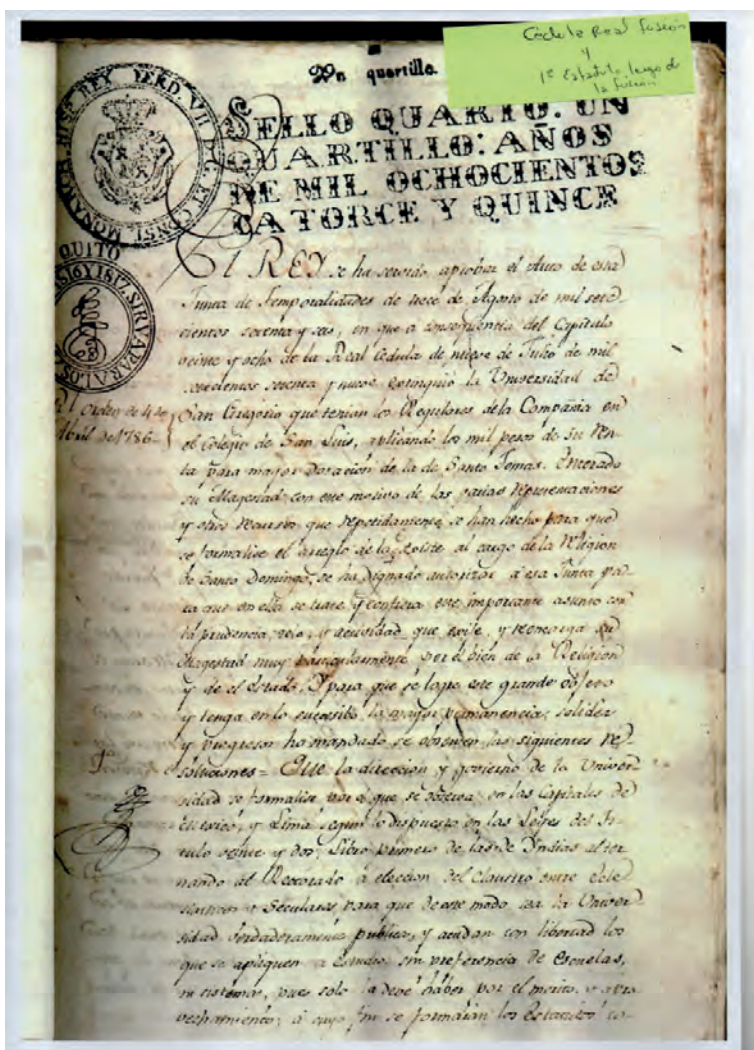 Cédula Real fusión
y
1º Estatuto luego de
la fusión
Un quartillo.
SELLO QUARTO. UN
QUARTILLO: AÑOS
DE MIL OCHOCIENTOS
CATORCE Y QUINCE
FERD. VII D. G. ET CONST. MONARCH. REY
QUITO
1816 Y 1817. SIRVA PARA LOS
El REY se ha servido aprobar el Auto de esa
Junta de Temporalidades de trece de Agosto de mil sete-
cientos setenta y seis, en que a consequencia del Capitulo
veinte y ocho de la Real Cedula de nueve de Julio de mil
setecientos sesenta y nueve extinguió la Universidad de
Rl. Orden de 4 de
Abril de 1786
San Gregorio que tenian los Regulares de la Compañia en
el Colegio de San Luis, aplicando los mil pesos de su Ren-
ta para mayor Dotacion de la de Santo Tomas. Enterado
su Magestad con este motivo de las varias representaciones
y otros recursos que repetidamente se han hecho para que
se formalise el arreglo de la existe al cargo de la Religion
de Santo Domingo, se ha dignado autorizar á esa Junta pa-
ra que en ella se trate y confiera este importante asunto con
la prudencia, zelo, y actividad que exije, y recomienda su
Magestad muy particularmente por el bien de la Religion
y de el Estado. Y para que se logre este grande objeto
y tenga en lo sucesibo la mayor permanencia, solidez
y progresos ha mandado se observen las siguientes Re-
1ª
soluciones = Que la direccion y govierno de la Univer-
sidad se formalise por el que se observa en las Capitales de
Mexico, y Lima segun lo dispuesto en las Leyes del Ti-
tulo veinte y dos, Libro primero de las de Indias alter
nando el Rectorado á eleccion del Claustro entre Ecle
siasticos y Seculares para que de este modo sea la Univer-
sidad verdaderamente publica, y acudan con libertad los
que se apliquen a estudio sin preferencia de Escuelas,
ni sistemas, pues solo la debe haber por el merito, y apro
vechamiento; á cuyo fin se formarán los Estatutos co-